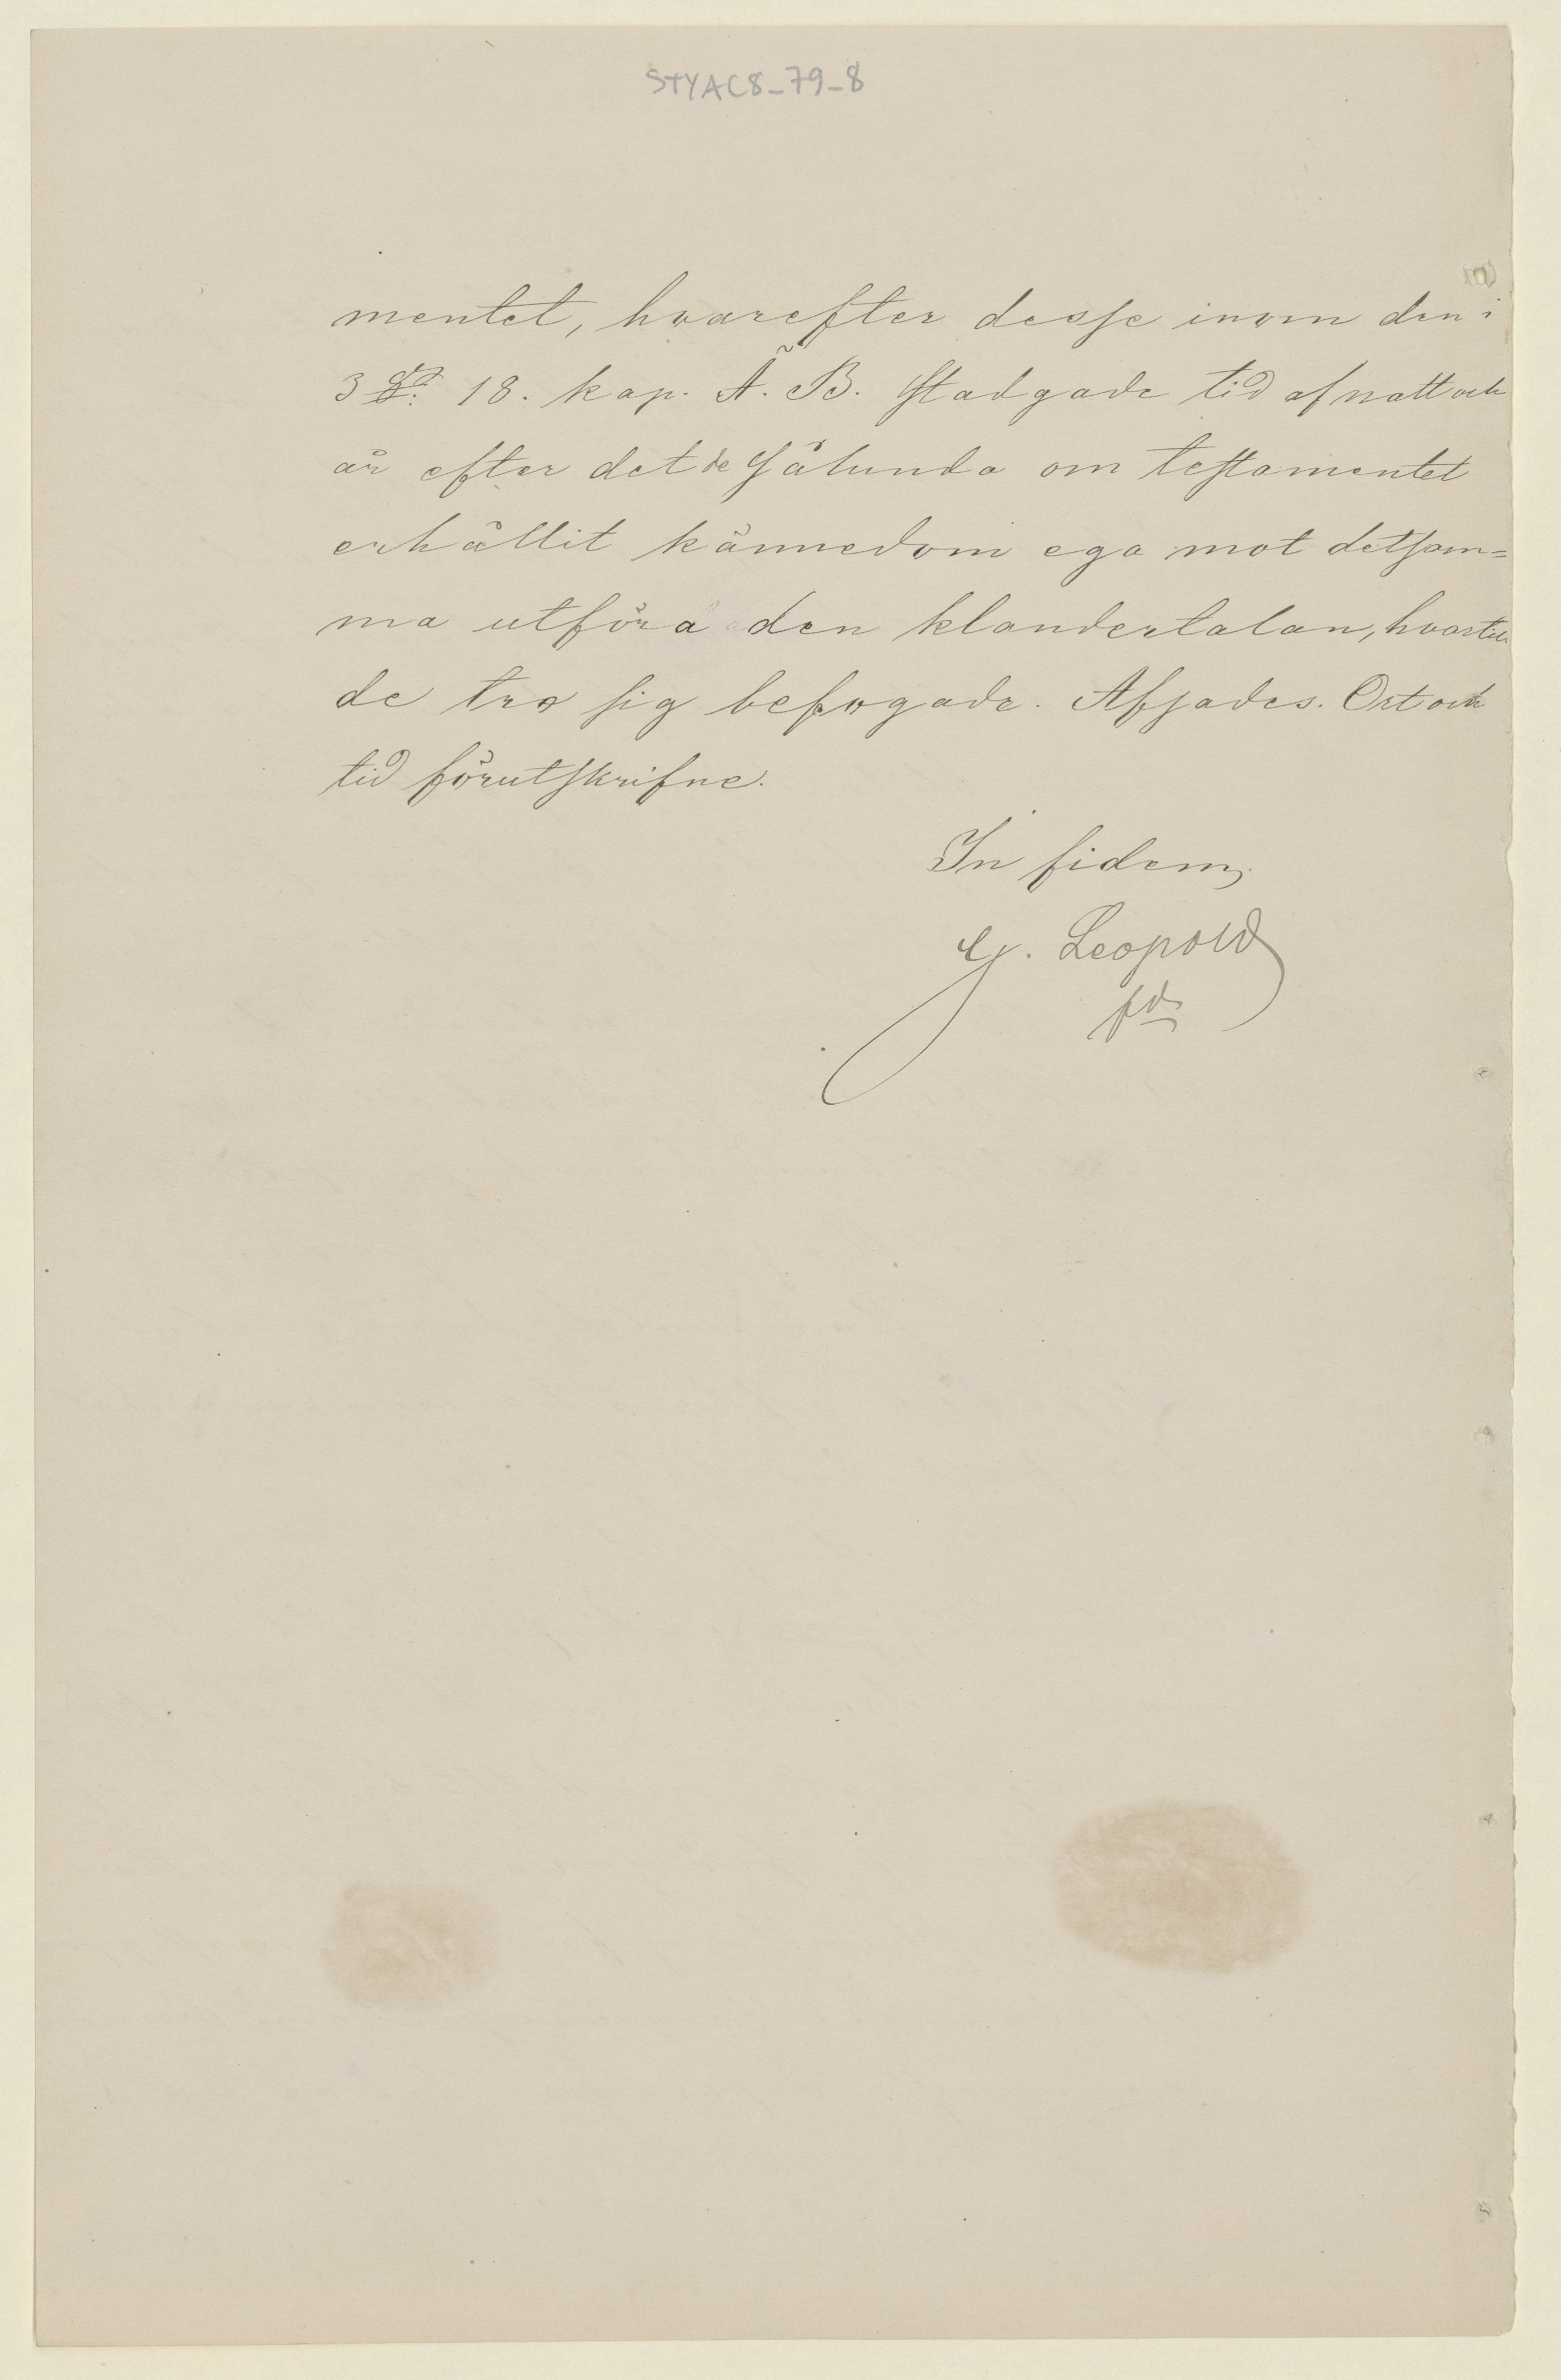 STYAC8_79_8
mentet, hvarefter desse inom den i
3 §. 18. kap. Ä. B. stadgade tid af natt och
år efter det de sålunda om testamentet
erhållit kännedom ega mot detsam=
ma utföra den klandertalan, hvartill
de tro sig befogade. Afsades. Ort och
tid förutskrifne.
In fidem,
G. Leopold